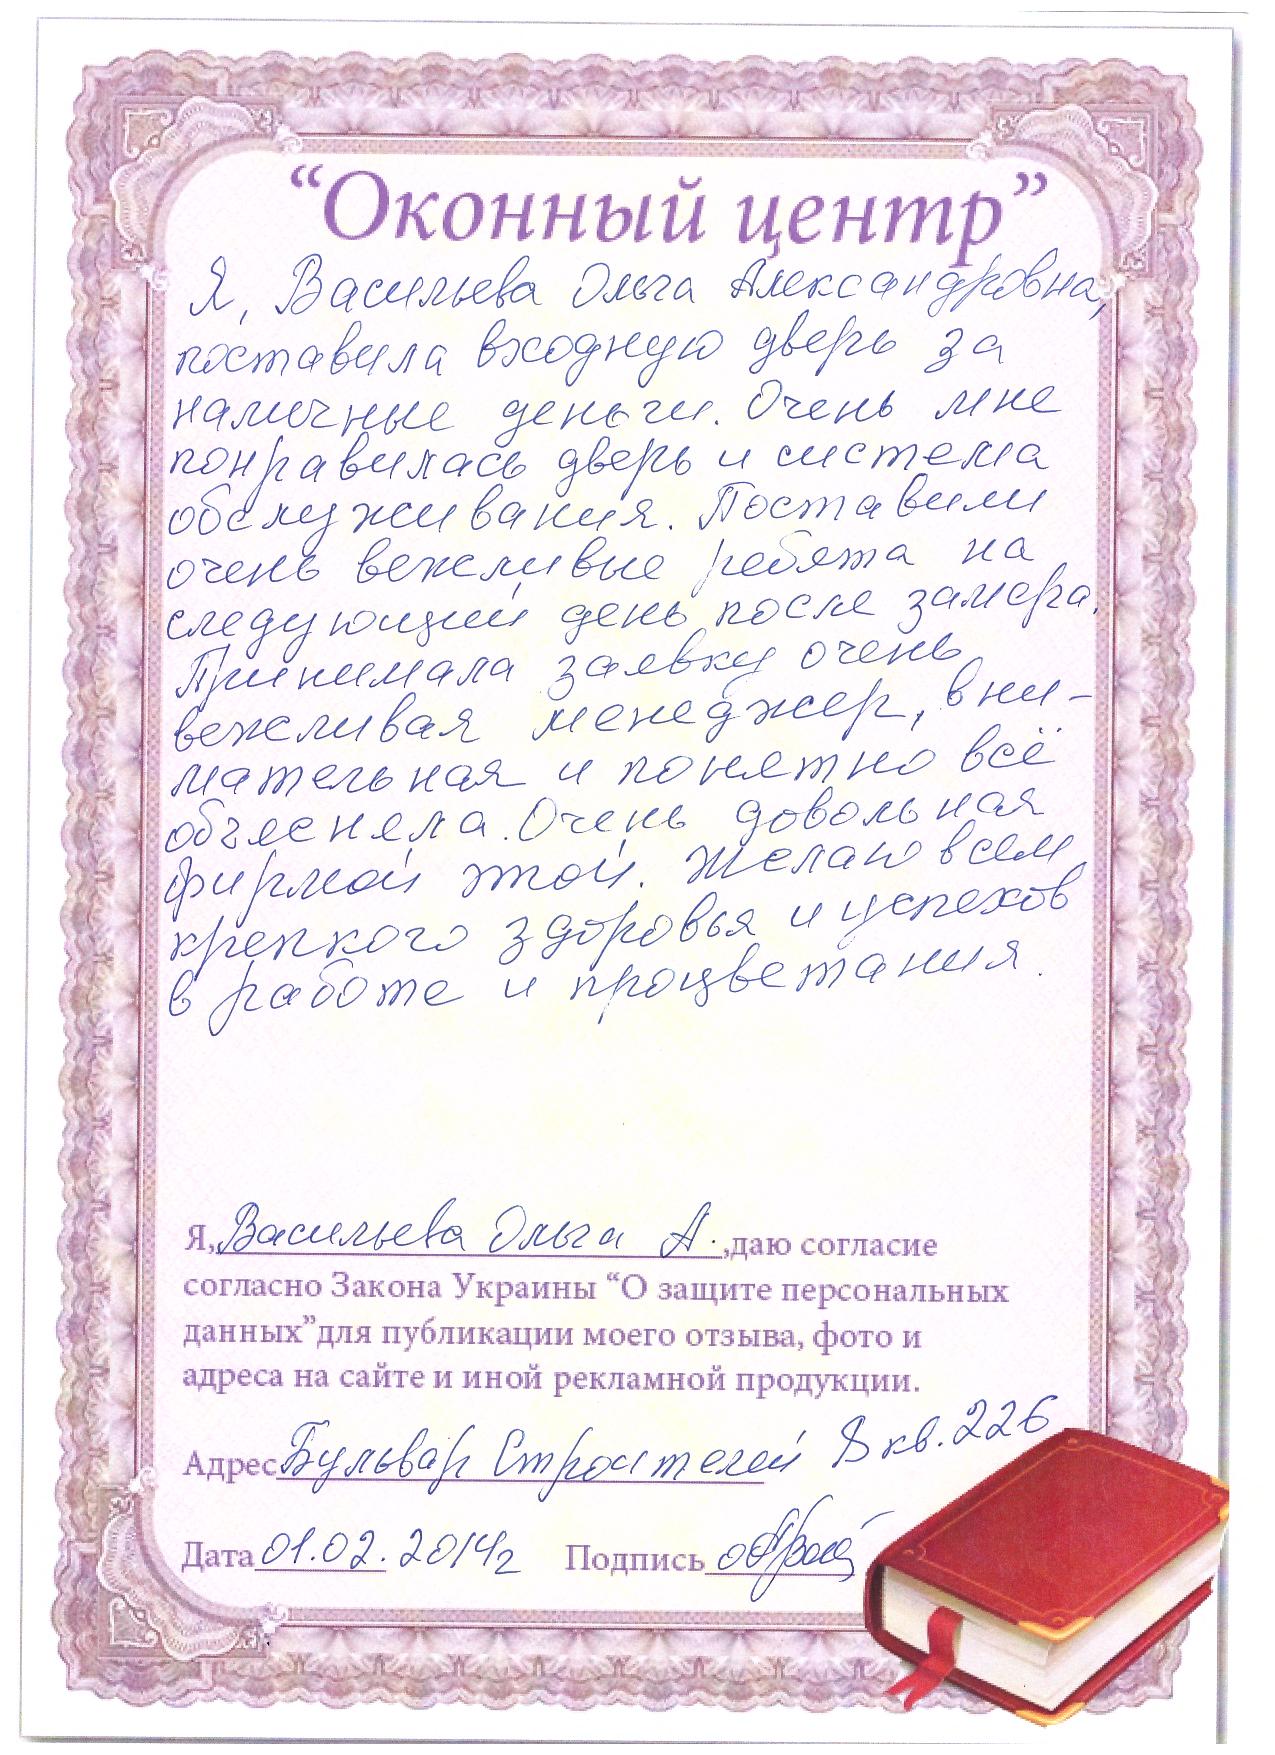 “Оконный центр”
Я, Васильева Ольга Александровна,
поставила входную дверь за
наличные деньги. Очень мне
понравилась дверь и система
обслуживания. Поставили
очень вежливые ребята на
следующий день после замера.
Принимала заявку очень
вежливая менеджер, вни-
мательная и понятно всё
объяснела. Очень довольная
фирмой этой. Желаю всем
крепкого здоровья и успехов
в работе и процветания.
Я, Васильева Ольга А. ,даю согласие
согласно Закона Украины “О защите персональных
данных”для публикации моего отзыва, фото и
адреса на сайте и иной рекламной продукции.
Адрес Бульвар Строителей 8 кв. 226
Дата 01.02. 2014г Подпись